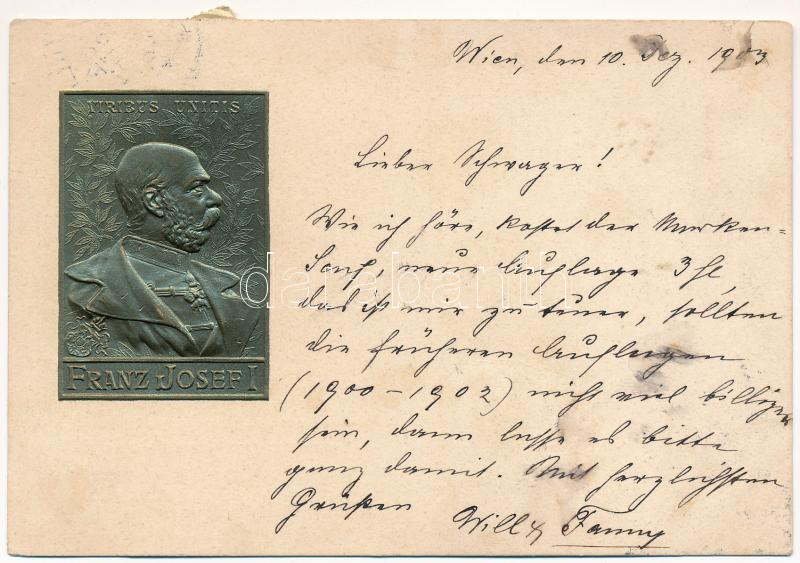 VIRIBUS UNITIS
FRANZ JOSEF I
Wien, den 10. Dez. 1903
Lieber Schwager!
Wie ich höre, kostet der Marken-
Senf, neue Auflage 3 fl,
das ist mir zu teuer, sollten
die früheren Auflagen
(1900-1902) nicht viel billiger
sein, dann lasse es bitte
ganz damit. Mit herzlichsten
Grüßen
Will & Fanny
darabanth